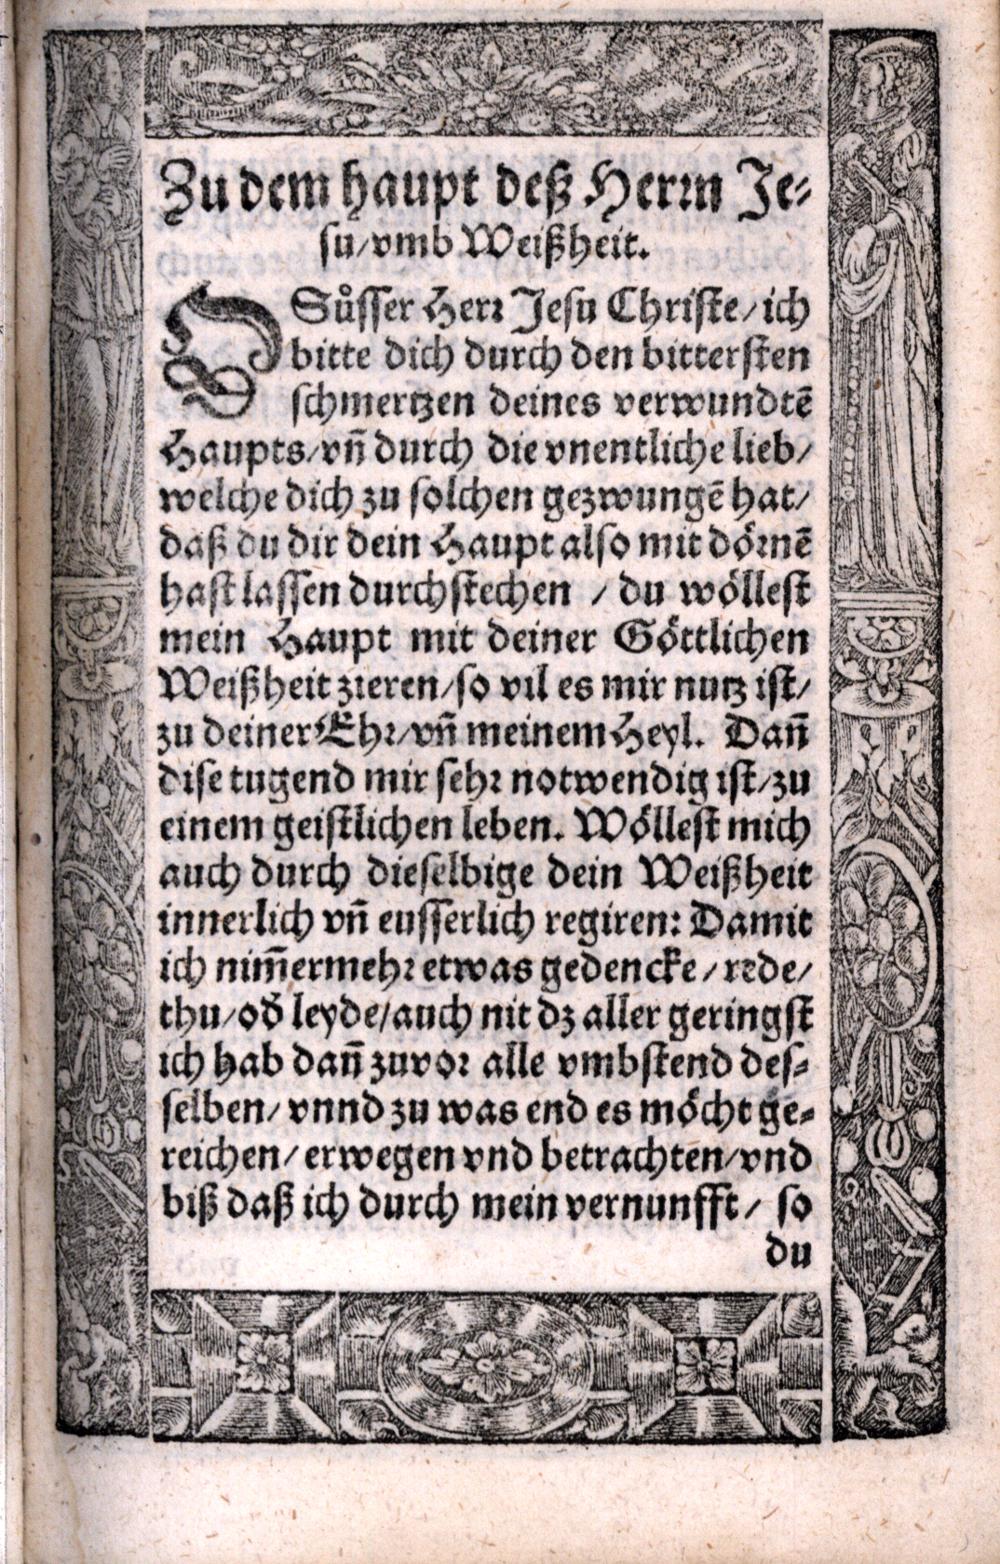 Zu dem haupt deß Herrn Je⸗
su/vmb Weißheit.
O Sůsser Herr Jesu Christe/ich
bitte dich durch den bittersten
schmertzen deines verwundtē
Haupts/vn̄ durch die vnentliche lieb/
welche dich zu solchen gezwungē hat/
daß du dir dein Haupt also mit dörnē
hast lassen durchstechen / du wöllest
mein Haupt mit deiner Göttlichen
Weißheit zieren/so vil es mir nutz ist/
zu deiner Ehr/vn̄ meinem Heyl. Dan̄
dise tugend mir sehr notwendig ist/zu
einem geistlichen leben. Wöllest mich
auch durch dieselbige dein Weißheit
innerlich vn̄ eusserlich regiren: Damit
ich nim̄ermehr etwas gedencke/rede/
thu/od̄ leyde/auch nit dz aller geringst
ich hab dan̄ zuvor alle vmbstend des⸗
selben/vnnd zu was end es möcht ge⸗
reichen/erwegen vnd betrachten/vnd
biß daß ich durch mein vernunfft/ so
du